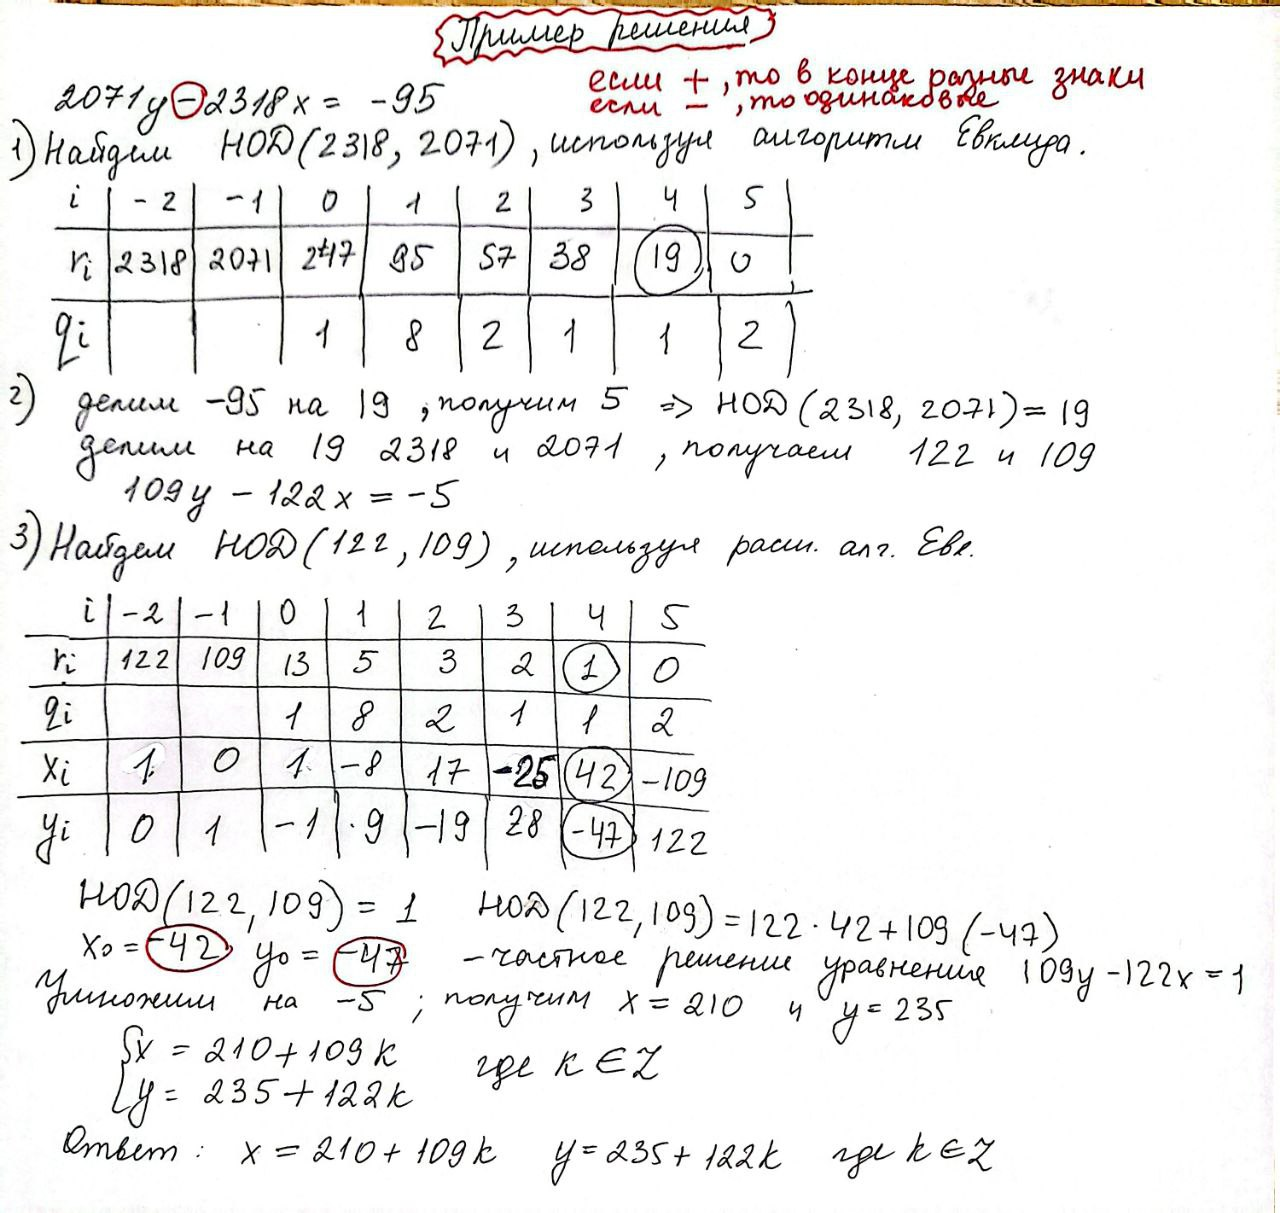 Пример решения
2071y - 2318x = -95
если +, то в конце разные знаки
если -, то одинаковые
1) Найдем НОД(2318, 2071), используя алгоритм Евклида.
i -2 -1 0 1 2 3 4 5
ri 2318 2071 247 95 57 38 19 0
qi 1 8 2 1 1 2
2) делим -95 на 19, получим 5 => НОД(2318, 2071) = 19
делим на 19 2318 и 2071, получаем 122 и 109
109y - 122x = -5
3) Найдем НОД(122, 109), используя расш. алг. Евк.
i -2 -1 0 1 2 3 4 5
ri 122 109 13 5 3 2 1 0
qi 1 8 2 1 1 2
xi 1 0 1 -8 17 -25 42 -109
yi 0 1 -1 9 -19 28 -47 122
НОД(122, 109) = 1 НОД(122, 109) = 122·42 + 109(-47)
x0 = -42 y0 = -47 - частное решение уравнения 109y - 122x = 1
Умножим на -5; получим x = 210 и y = 235
{x = 210 + 109k
y = 235 + 122k где k ∈ Z
Ответ: x = 210 + 109k y = 235 + 122k где k ∈ Z